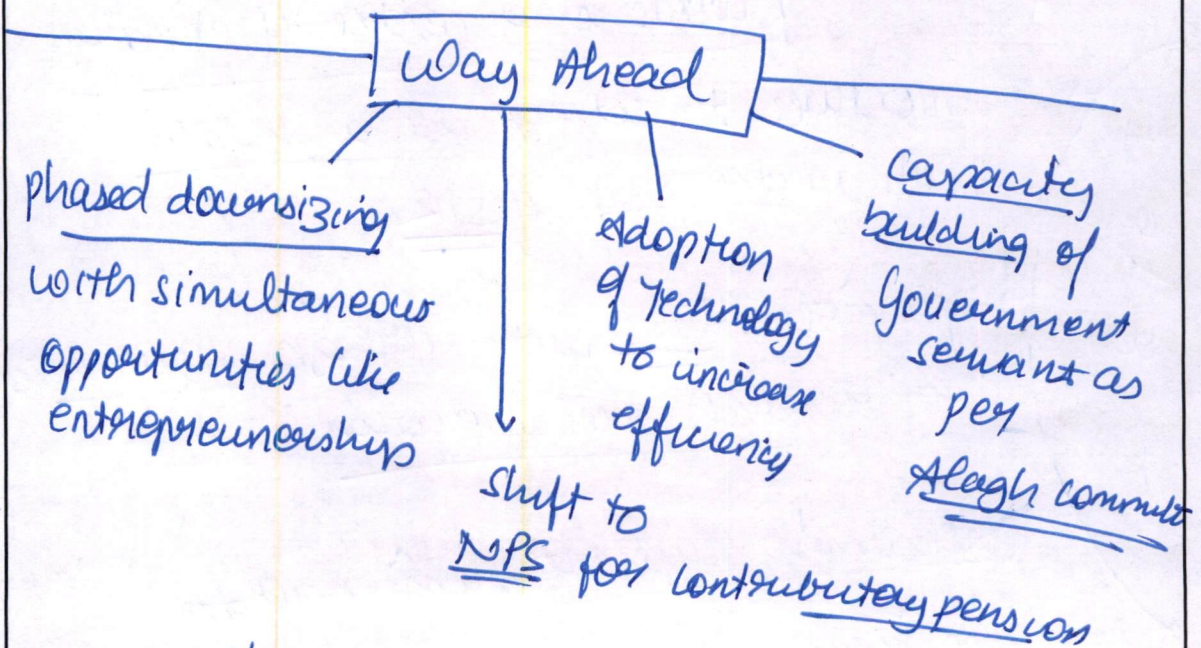 Way Ahead
phased downsizing
with simultaneous
opportunities like
entrepreunership
shift to
NPS for contributory pension
Adoption
of Technology
to increase
efficiency
capacity
building of
Government
servant as
per
Alagh committ